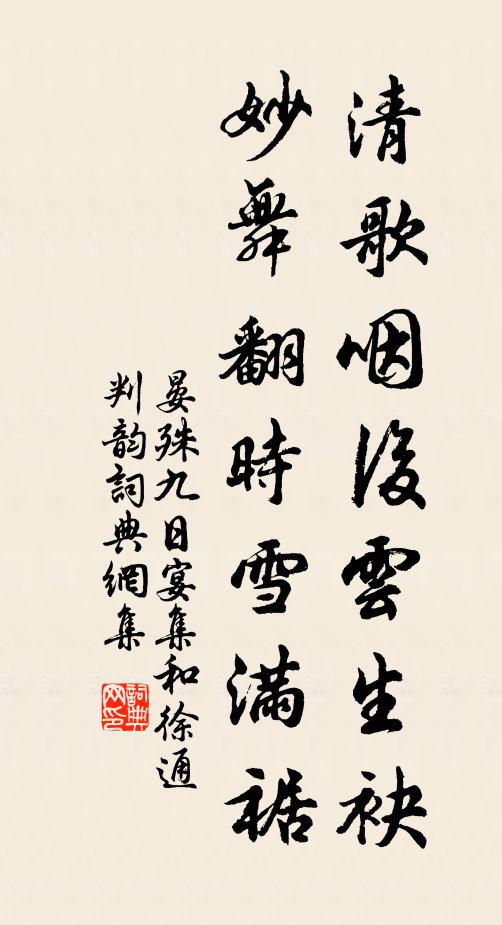 清歌咽後雲生袂
妙舞翻時雪滿裾
晏殊九日宴集和徐通
判韵詞典網集
詞典
网印